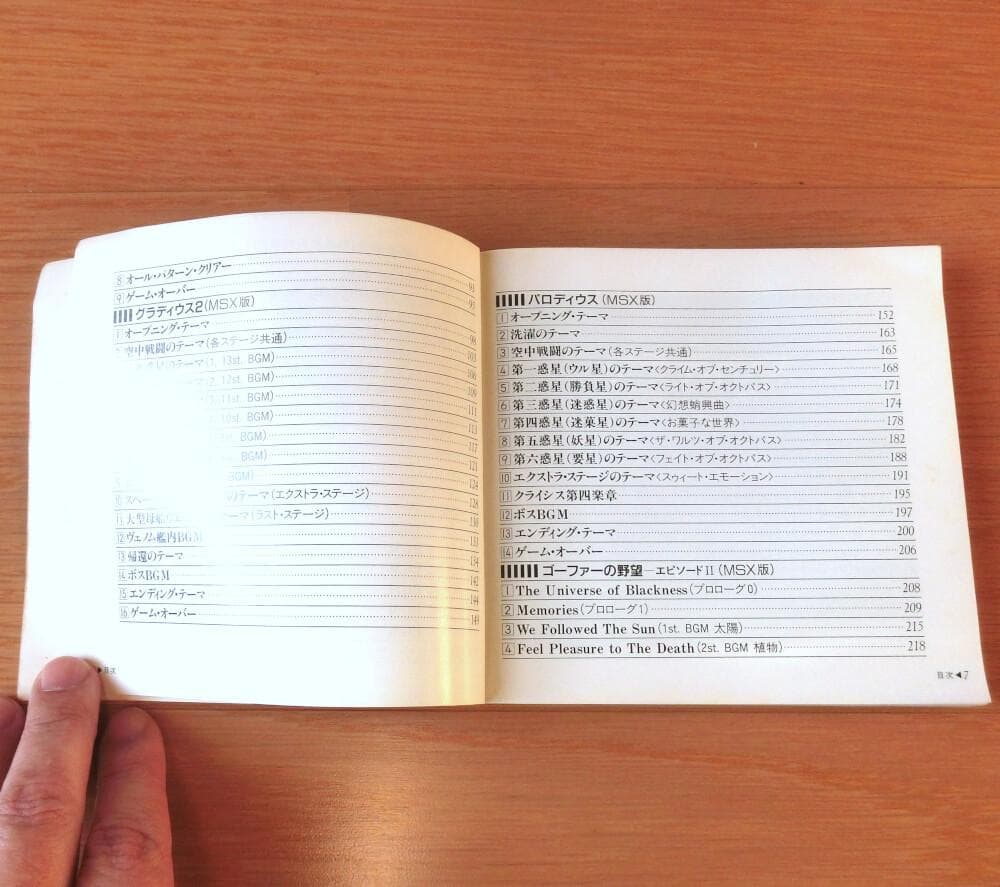 8 オール・パターン・クリアー 93
9 ゲーム・オーバー 95
グラディウス2(MSX版)
1 オープニング・テーマ 98
空中戦闘のテーマ(各ステージ共通) 103
のテーマ(1, 13st. BGM) 106
(2, 12st. BGM) 109
, 11st. BGM) 111
10st. BGM) 113
st. BGM) 117
BGM) 121
BGM) 124
10 スペー のテーマ(エクストラ・ステージ) 128
11 大型母艦 テーマ(ラスト・ステージ) 130
12 ヴェノム艦内BGM 131
13 帰還のテーマ 134
14 ボスBGM 142
15 エンディング・テーマ 144
16 ゲーム・オーバー 149
▶目次
パロディウス(MSX版)
1 オープニング・テーマ 152
2 洗濯のテーマ 163
3 空中戦闘のテーマ(各ステージ共通) 165
4 第一惑星(ウル星)のテーマ<クライム・オブ・センチュリー> 168
5 第二惑星(勝負星)のテーマ<ライト・オブ・オクトパス> 171
6 第三惑星(迷惑星)のテーマ<幻想蛸興曲> 174
7 第四惑星(迷菓星)のテーマ<お菓子な世界> 178
8 第五惑星(妖星)のテーマ<ザ・ワルツ・オブ・オクトパス> 182
9 第六惑星(要星)のテーマ<フェイト・オブ・オクトパス> 188
10 エクストラ・ステージのテーマ<スウィート・エモーション> 191
11 クライシス第四楽章 195
12 ボスBGM 197
13 エンディング・テーマ 200
14 ゲーム・オーバー 206
ゴーファーの野望―エピソードII(MSX版)
1 The Universe of Blackness(プロローグ0) 208
2 Memories(プロローグ1) 209
3 We Followed The Sun(1st. BGM 太陽) 215
4 Feel Pleasure to The Death(2st. BGM 植物) 218
目次◀7